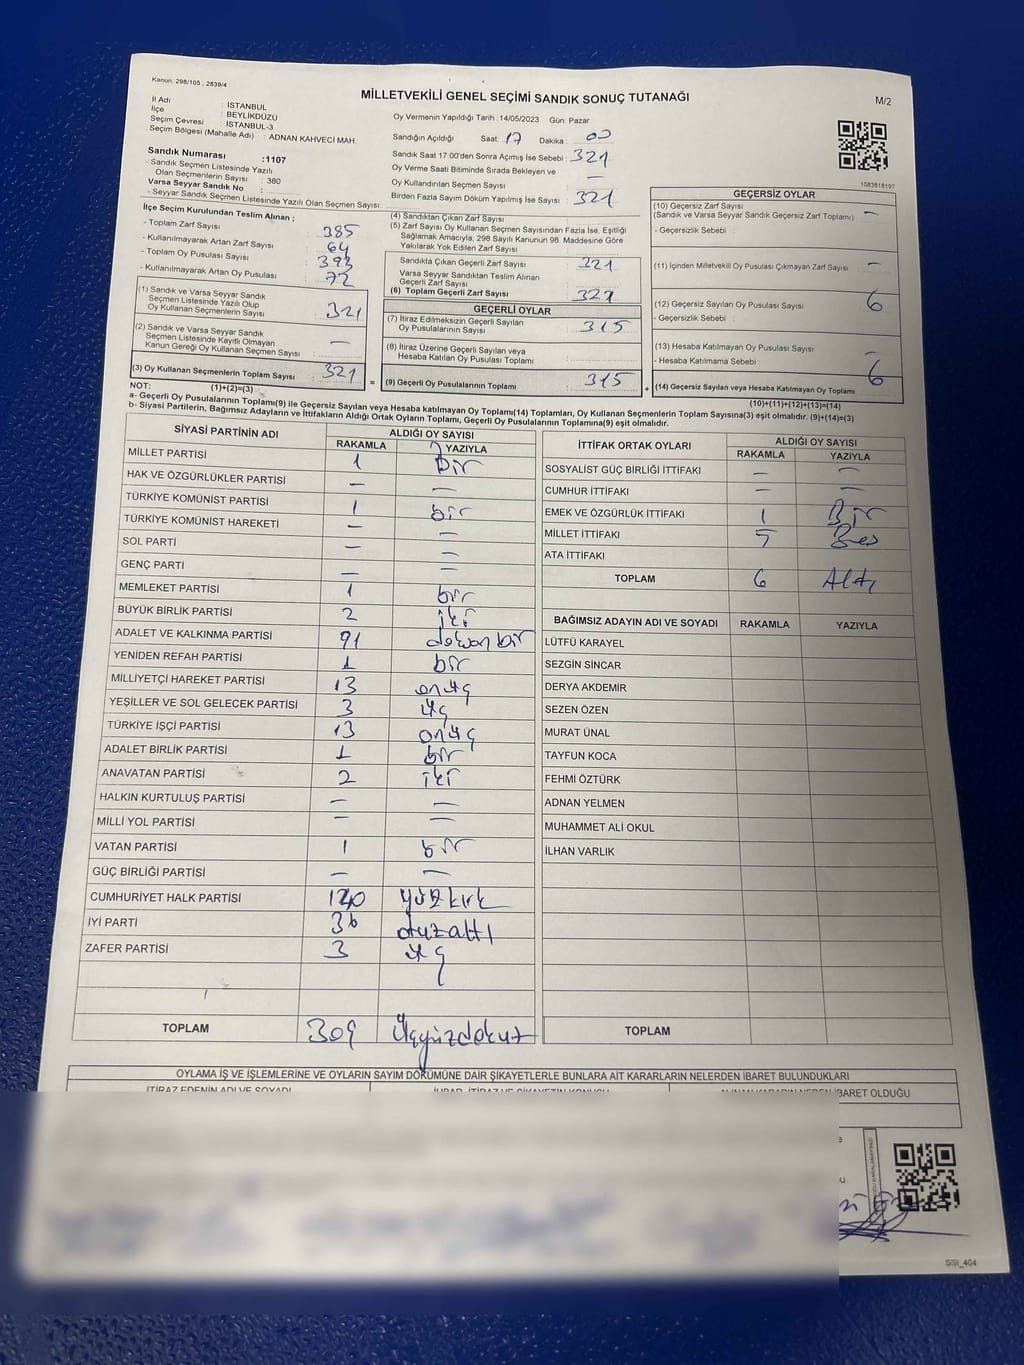 Kanun: 298/105 , 2839/4
MİLLETVEKİLİ GENEL SEÇİMİ SANDIK SONUÇ TUTANAĞI
M/2
İl Adı : İSTANBUL
İlçe : BEYLİKDÜZÜ
Seçim Çevresi : İSTANBUL-3
Seçim Bölgesi (Mahalle Adı) : ADNAN KAHVECİ MAH.
Sandık Numarası :1107
- Sandık Seçmen Listesinde Yazılı
Olan Seçmenlerin Sayısı : 380
Varsa Seyyar Sandık No :
- Seyyar Sandık Seçmen Listesinde Yazılı Olan Seçmen Sayısı:
Oy Vermenin Yapıldığı Tarih :14/05/2023 Gün: Pazar
Sandığın Açıldığı Saat: 17 Dakika : 00
Sandık Saat 17:00'den Sonra Açımış İse Sebebi : 321
Oy Verme Saati Bitiminde Sırada Bekleyen ve
Oy Kullandırılan Seçmen Sayısı —
Birden Fazla Sayım Döküm Yapılmış İse Sayısı : 321
1083618197
İlçe Seçim Kurulundan Teslim Alınan ;
- Toplam Zarf Sayısı 385
- Kullanılmayarak Artan Zarf Sayısı 64
- Toplam Oy Pusulası Sayısı 393
- Kullanılmayarak Artan Oy Pusulası 72
(1) Sandık ve Varsa Seyyar Sandık
Seçmen Listesinde Yazılı Olup
Oy Kullanan Seçmenlerin Sayısı 321
(2) Sandık ve Varsa Seyyar Sandık
Seçmen Listesinde Kayıtlı Olmayan
Kanun Gereği Oy Kullanan Seçmen Sayısı —
(3) Oy Kullanan Seçmenlerin Toplam Sayısı 321
(1)+(2)=(3)
(4) Sandıktan Çıkan Zarf Sayısı
(5) Zarf Sayısı Oy Kullanan Seçmen Sayısından Fazla İse, Eşitliği
Sağlamak Amacıyla; 298 Sayılı Kanunun 98. Maddesine Göre
Yakılarak Yok Edilen Zarf Sayısı
Sandıkta Çıkan Geçerli Zarf Sayısı 321
Varsa Seyyar Sandıktan Teslim Alınan
Geçerli Zarf Sayısı
(6) Toplam Geçerli Zarf Sayısı 321
GEÇERLİ OYLAR
(7) İtiraz Edilmeksizin Geçerli Sayılan
Oy Pusulalarının Sayısı 315
(8) İtiraz Üzerine Geçerli Sayılan veya
Hesaba Katılan Oy Pusulası Toplamı
= (9) Geçerli Oy Pusulalarının Toplamı 315
GEÇERSİZ OYLAR
(10) Geçersiz Zarf Sayısı —
(Sandık ve Varsa Seyyar Sandık Geçersiz Zarf Toplamı)
- Geçersizlik Sebebi :
(11) İçinden Milletvekili Oy Pusulası Çıkmayan Zarf Sayısı —
(12) Geçersiz Sayılan Oy Pusulası Sayısı 6
- Geçersizlik Sebebi :
(13) Hesaba Katılmayan Oy Pusulası Sayısı —
- Hesaba Katılmama Sebebi :
+ (14) Geçersiz Sayılan veya Hesaba Katılmayan Oy Toplamı 6
(10)+(11)+(12)+(13)=(14)
NOT:
a- Geçerli Oy Pusulalarının Toplamı(9) ile Geçersiz Sayılan veya Hesaba katılmayan Oy Toplamı(14) Toplamları, Oy Kullanan Seçmenlerin Toplam Sayısına(3) eşit olmalıdır. (9)+(14)=(3)
b- Siyasi Partilerin, Bağımsız Adayların ve İttifakların Aldığı Ortak Oyların Toplamı, Geçerli Oy Pusulalarının Toplamına(9) eşit olmalıdır.
SİYASİ PARTİNİN ADI ALDIĞI OY SAYISI
RAKAMLA YAZIYLA
MİLLET PARTİSİ 1 bir
HAK VE ÖZGÜRLÜKLER PARTİSİ — —
TÜRKİYE KOMÜNİST PARTİSİ 1 bir
TÜRKİYE KOMÜNİST HAREKETİ — —
SOL PARTİ — —
GENÇ PARTİ — —
MEMLEKET PARTİSİ 1 bir
BÜYÜK BİRLİK PARTİSİ 2 iki
ADALET VE KALKINMA PARTİSİ 91 doksan bir
YENİDEN REFAH PARTİSİ 1 bir
MİLLİYETÇİ HAREKET PARTİSİ 13 onüç
YEŞİLLER VE SOL GELECEK PARTİSİ 3 üç
TÜRKİYE İŞÇİ PARTİSİ 13 onüç
ADALET BİRLİK PARTİSİ 1 bir
ANAVATAN PARTİSİ 2 iki
HALKIN KURTULUŞ PARTİSİ — —
MİLLİ YOL PARTİSİ — —
VATAN PARTİSİ 1 bir
GÜÇ BİRLİĞİ PARTİSİ — —
CUMHURİYET HALK PARTİSİ 140 yüzkırk
İYİ PARTİ 36 otuzaltı
ZAFER PARTİSİ 3 üç
TOPLAM 309 üçyüzdokuz
İTTİFAK ORTAK OYLARI ALDIĞI OY SAYISI
RAKAMLA YAZIYLA
SOSYALİST GÜÇ BİRLİĞİ İTTİFAKI — —
CUMHUR İTTİFAKI — —
EMEK VE ÖZGÜRLÜK İTTİFAKI 1 Bir
MİLLET İTTİFAKI 5 Beş
ATA İTTİFAKI
TOPLAM 6 Altı
BAĞIMSIZ ADAYIN ADI VE SOYADI RAKAMLA YAZIYLA
LÜTFÜ KARAYEL
SEZGİN SİNCAR
DERYA AKDEMİR
SEZEN ÖZEN
MURAT ÜNAL
TAYFUN KOCA
FEHMİ ÖZTÜRK
ADNAN YELMEN
MUHAMMET ALİ OKUL
İLHAN VARLIK
TOPLAM
OYLAMA İŞ VE İŞLEMLERİNE VE OYLARIN SAYIM DÖKÜMÜNE DAİR ŞİKAYETLERLE BUNLARA AİT KARARLARIN NELERDEN İBARET BULUNDUKLARI
İTİRAZ EDENİN ADI VE SOYADI
BARET OLDUĞU
SSI_404